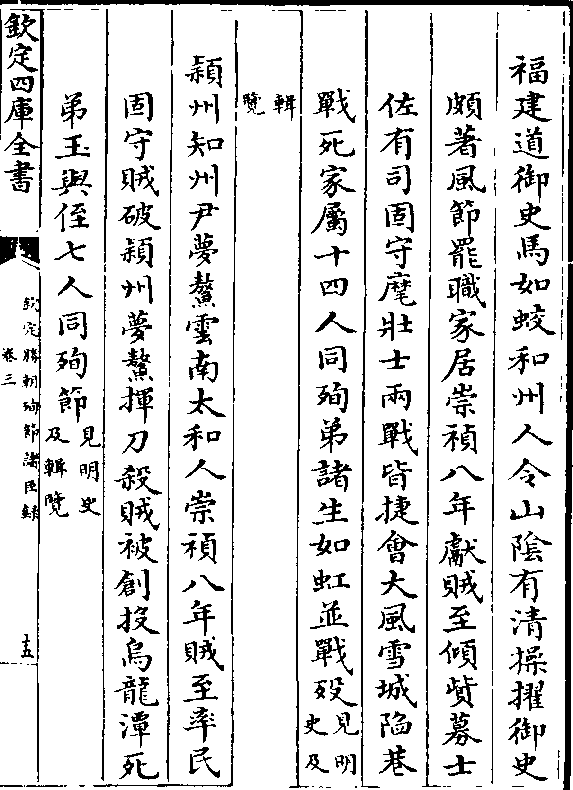 福建道御史馬如蛟和州人令山陰有清操擢御史
頗著風節罷職家居崇禎八年獻賊至傾貲募士
佐有司固守麾壯士兩戰皆捷會大風雪城陷巷
戰死家屬十四人同殉弟諸生如虹並戰歿見明史及
輯覽
潁州知州尹夢鰲雲南太和人崇禎八年賊至率民
固守賊破潁州夢鰲揮刀殺賊被創投烏龍潭死
弟玉與侄七人同殉節見明史及輯覽
欽定四庫全書
欽定勝朝殉節諸臣錄
卷三
十五